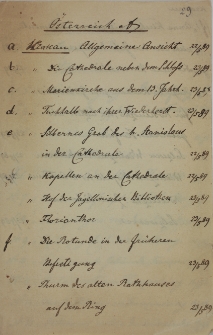 29
Österreich
a Krakau. Allgemeine Ansicht 22/5 89
b " Die Cathedrale neben dem Schloss 22/5 89
c. " Marienkirche aus dem 13. Jahrh. 23/5 89
d " Tuchhalle nach ihrer 23/5 89
e Silbernes Grab des h. Stanislaus
in der Cathedrale 22/5 89
" Kapellen an der Cathedrale 22/5 89
" Hof der Jagellonischen Bibliothek 23/5 89
" Florianthor 23/5 89
f " Die Rotunde in der früheren
Befestigung 23/5 89
" Thurm des alten Rathhauses
auf dem Ring 23/5 89